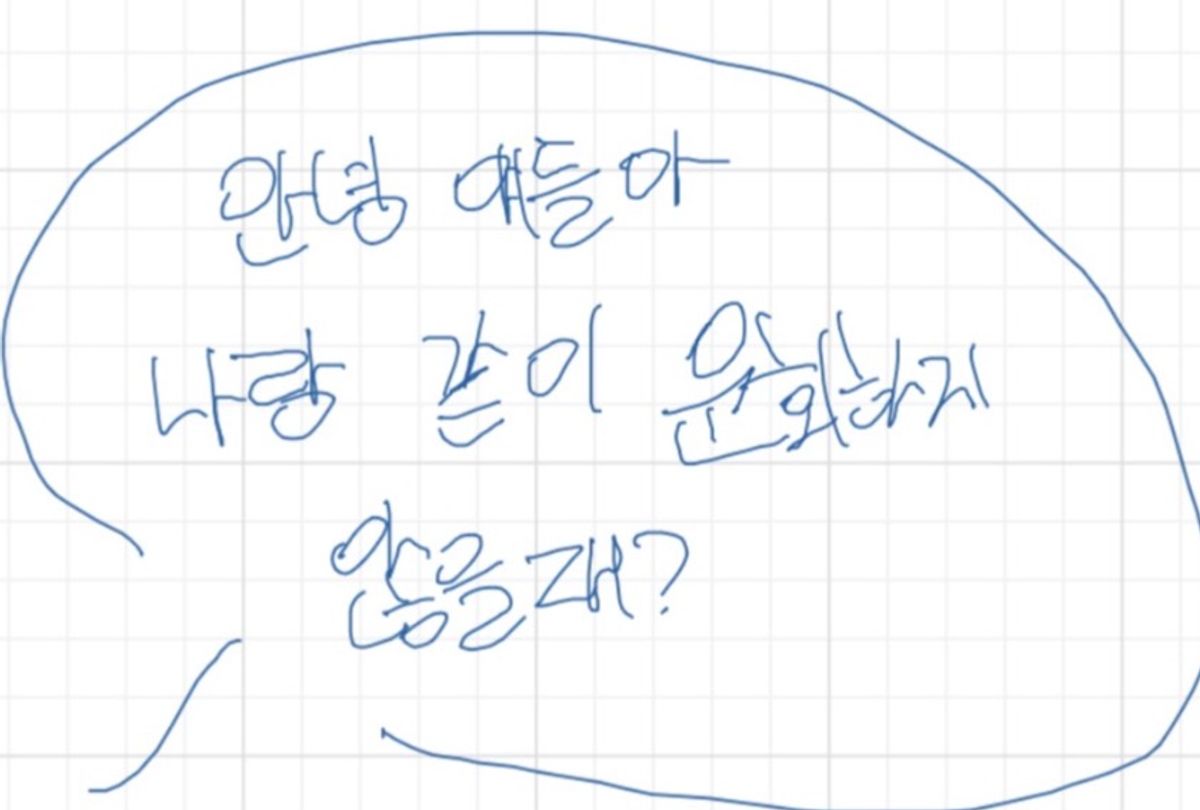 안녕 얘들아
나랑 같이 윤회하지
않을래?